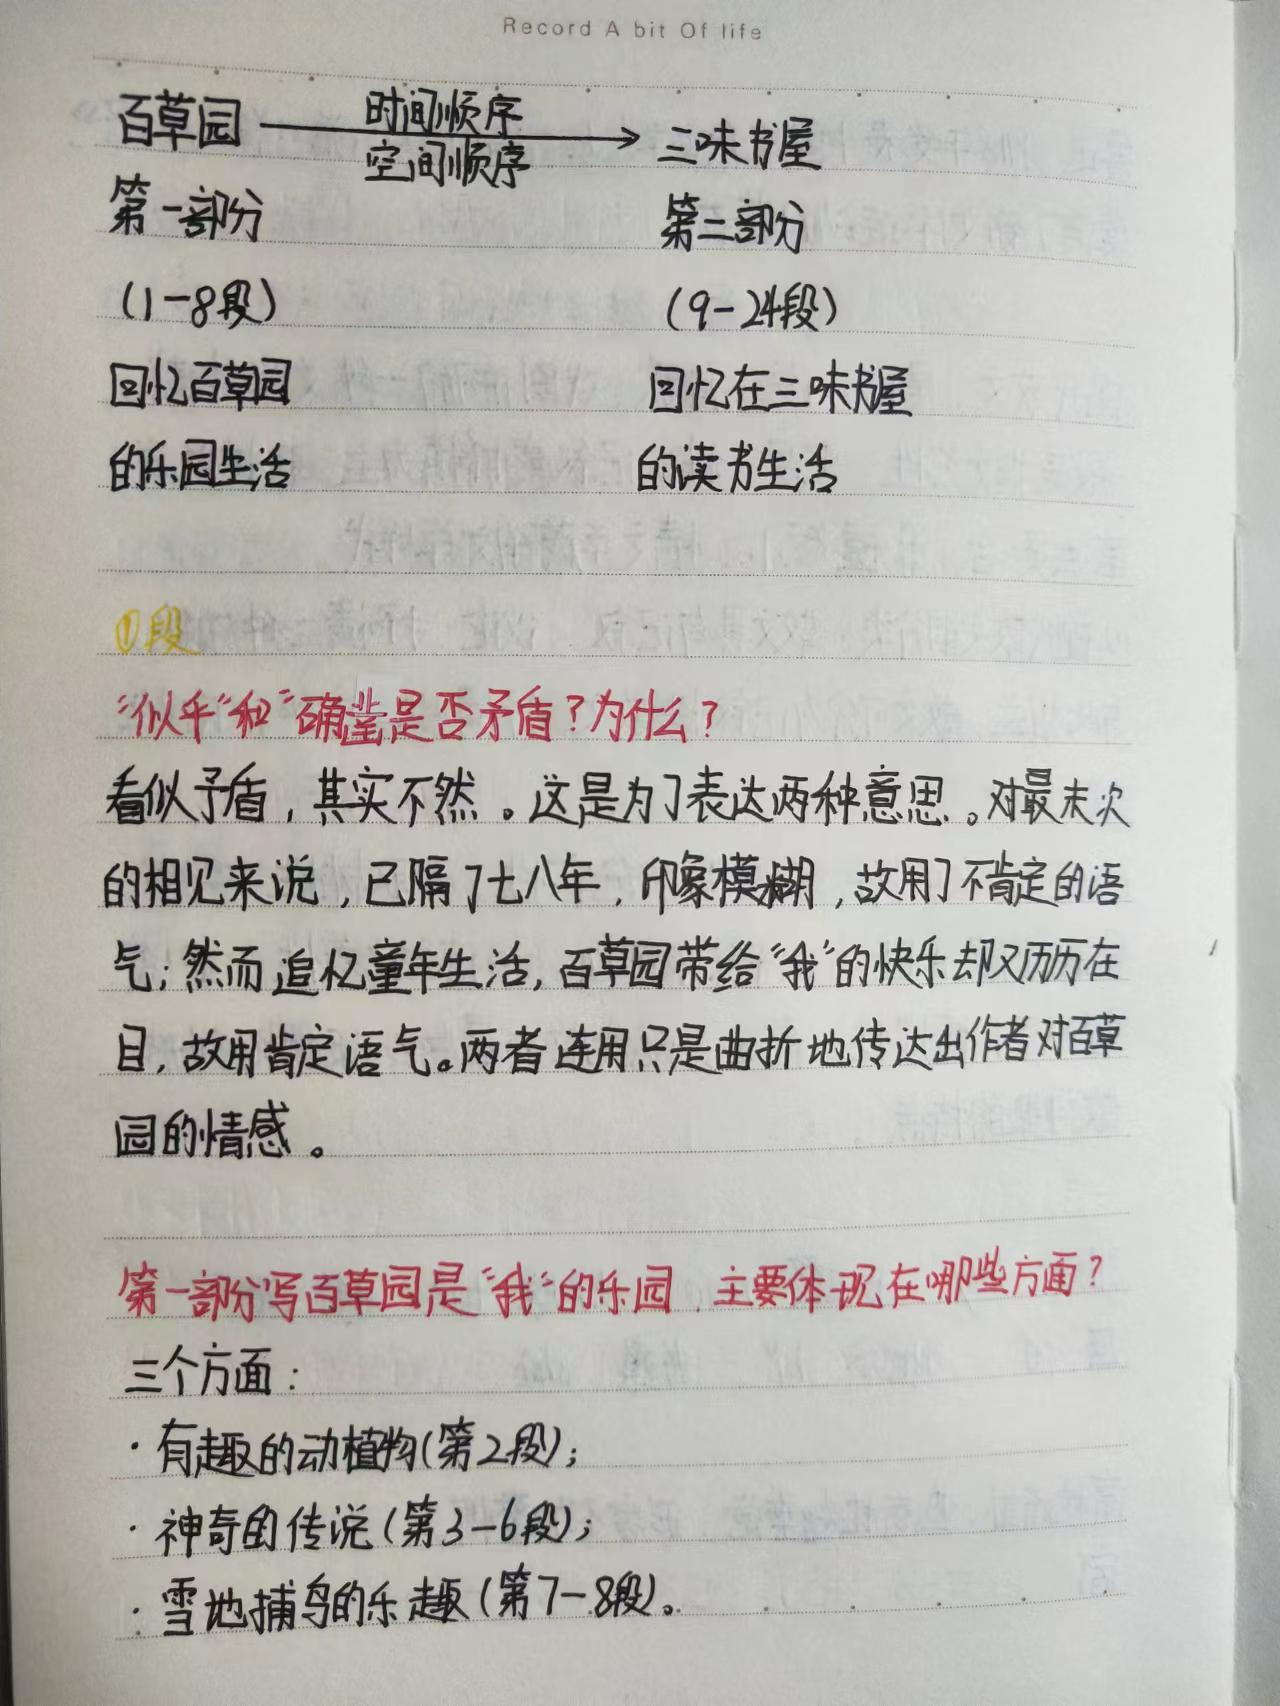 Record A bit Of life
百草园 时间顺序 三味书屋
空间顺序
第一部分 第二部分
(1-8段) (9-24段)
回忆百草园 回忆在三味书屋
的乐园生活 的读书生活
①段
“似乎”和“确凿是否矛盾?为什么?
看似矛盾,其实不然。这是为了表达两种意思。对最末次
的相见来说,已隔了七八年,印象模糊,故用了不肯定的语
气;然而追忆童年生活,百草园带给“我”的快乐却又历历在
目,故用肯定语气。两者连用只是曲折地传达出作者对百草
园的情感。
第一部分写百草园是“我”的乐园,主要体现在哪些方面?
三个方面:
·有趣的动植物(第2段);
·神奇的传说(第3-6段);
·雪地捕鸟的乐趣(第7-8段)。